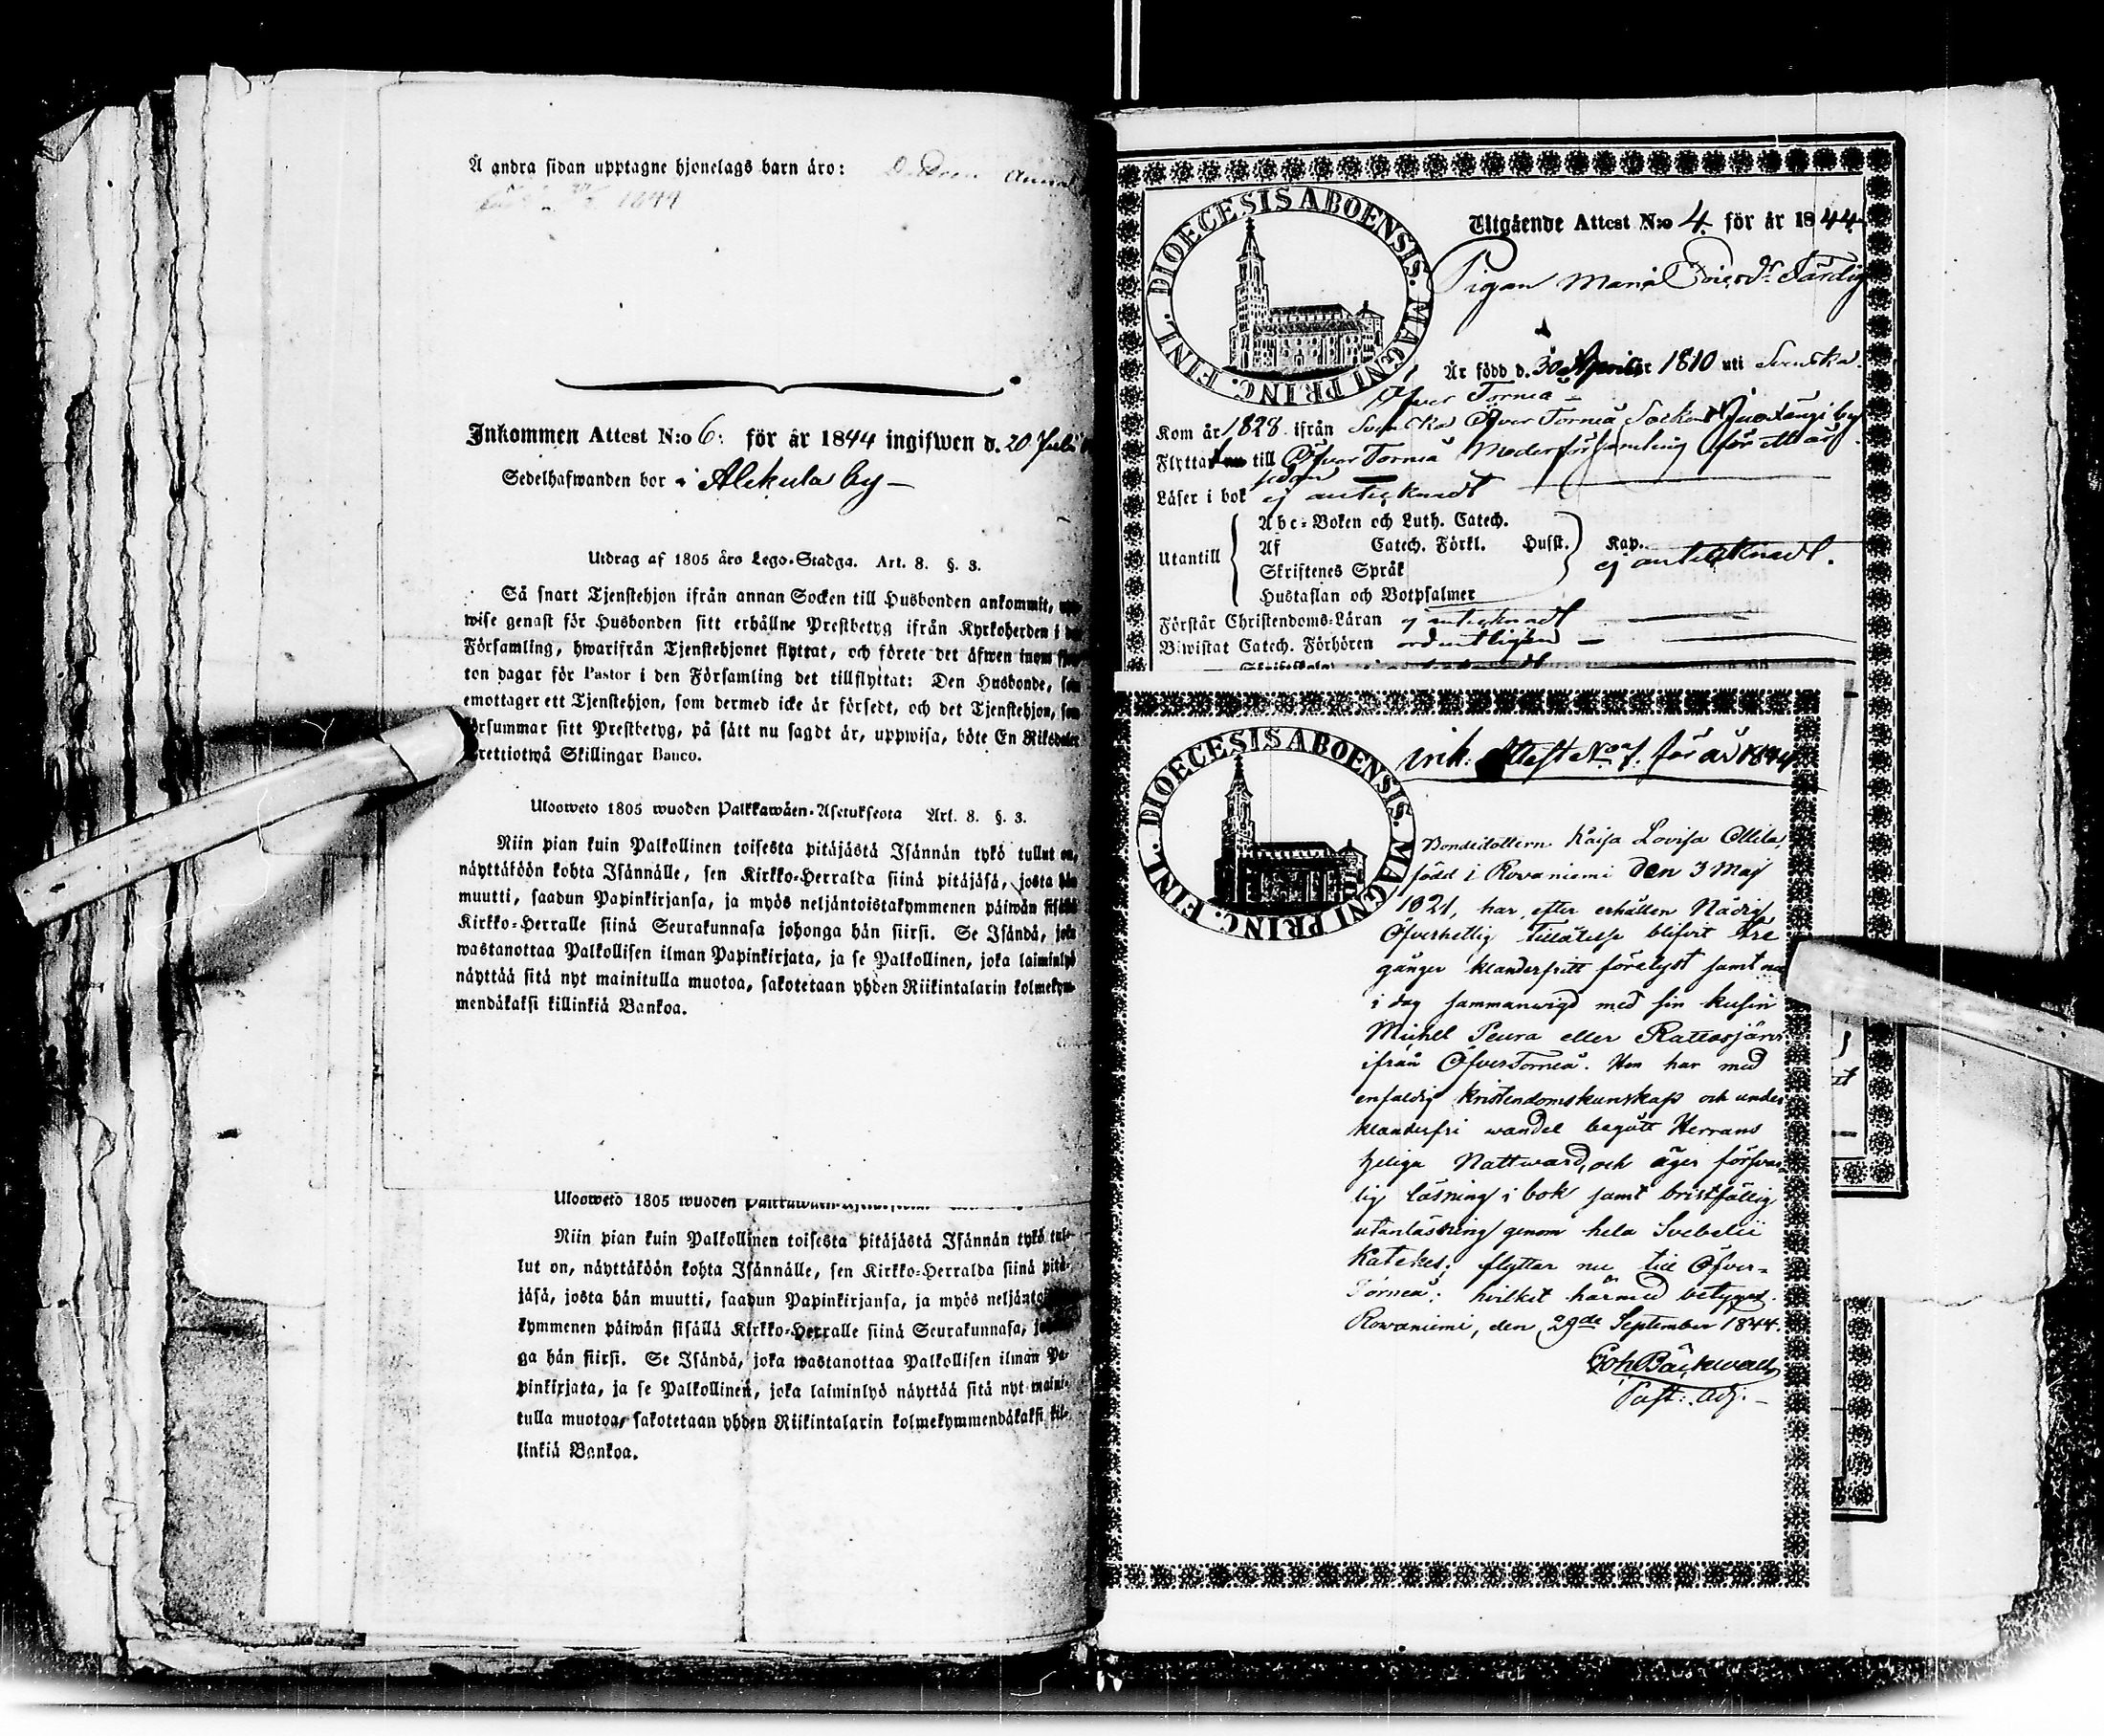 Å andra sidan upptagne hjonelags barn äro:
1844
Inkommen Attest N:o 6: för år 1844 ingifwen d. 20 Juli
Sedelhafwanden bor i Alkula by —
Utdrag af 1805 års Lego-Stadga. Art. 8. §. 3.
Så snart Tjenstehjon ifrån annan Socken till Husbonden ankommit,
wise genast för Husbonden sitt erhållne Prestbetyg ifrån Kyrkoherden i
Församling, hwarifrån Tjenstehjonet flyttat, och förete det äfwen inom
ton dagar för Pastor i den Församling det tillflyttat: Den Husbonde,
emottager ett Tjenstehjon, som dermed icke är försedt, och det Tjenstehjon,
försummar sitt Prestbetyg, på sätt nu sagdt är, uppwisa, böte En Riksdaler
Trettiotwå Skillingar Banco.
Ulosweto 1805 wuoden Palkkawäen-Asetuksesta Art. 8. §. 3.
Niin pian kuin Palkollinen toisesta pitäjästä Isännän tykö tullut on,
näyttäköön kohta Isännälle, sen Kirkko-Herralda siinä pitäjäsä, josta hän
muutti, saadun Papinkirjansa, ja myös neljäntoistakymmenen päiwän sisällä
Kirkko-Herralle siinä Seurakunnasa johonga hän siirsi. Se Isändä, joka
wastanottaa Palkollisen ilman Papinkirjata, ja se Palkollinen, joka laiminlyö
näyttää sitä nyt mainitulla muotoa, sakotetaan yhden Riikintalarin kolmekym-
mendäkaksi killinkiä Bankoa.
Ulosweto 1805 wuoden
Niin pian kuin Palkollinen toisesta pitäjästä Isännän tykö tul-
lut on, näyttäköön kohta Isännälle, sen Kirkko-Herralda siinä pitä-
jäsä, josta hän muutti, saadun Papinkirjansa, ja myös
kymmenen päiwän sisällä Kirkko-Herralle siinä Seurakunnasa,
ga hän siirsi. Se Isändä, joka wastanottaa Palkollisen ilman Pa-
pinkirjata, ja se Palkollinen, joka laiminlyö näyttää sitä nyt maini-
tulla muotoa, sakotetaan yhden Riikintalarin kolmekymmendäkaksi kil-
linkiä Bankoa.
DIOECESIS ABOENSIS. MAGNI PRINC. FINL.
Utgående Attest N:o 4. för år 1844
Pigan Maria
Är född d. 30 April 1810 uti Svenska
Öfver Torneå
Kom år 1828 ifrån Svenska Öfver Torneå Socken Juoxengi by
Flyttat till Öfver Torneå Moderförsamling för ett år
sedan
Läser i bok ej antecknadt
Utantill
Abc-Boken och Luth. Catech.
Af Catech. Förkl. Husst. Kap.
Skriftenes Språk
Hustaflan och Botpsalmer
ej antecknadt.
Förstår Christendoms-Läran ej antecknadt
Biwistat Catech. Förhören ordentligen —
DIOECESIS ABOENSIS. MAGNI PRINC. FINL.
ink: Attest No 7. för år 1844
Bondedottern Kaisa Lovisa Ollila,
född i Rovaniemi den 3 Maj
1821, har efter erhållen Nådig
Öfverhetlig tillåtelse blifvit tre
gånger klanderfritt förelyst samt
i dag sammanvigd med sin kusin
Michel Peura eller Rattosjärvi
ifrån Öfvertorneå. Hon har med
enfaldig kristendomskunskap och under
klanderfri wandel begått Herrans
heliga Nattward, och äger försvar-
lig läsning i bok samt bristfällig
utanläsning genom hela Svebelii
Kateches; flyttar nu till Öfver-
Torneå; hvilket härmed betygas.
Rowaniemi, den 29de September 1844.
Joh Bäckwall
Past: Adj: —